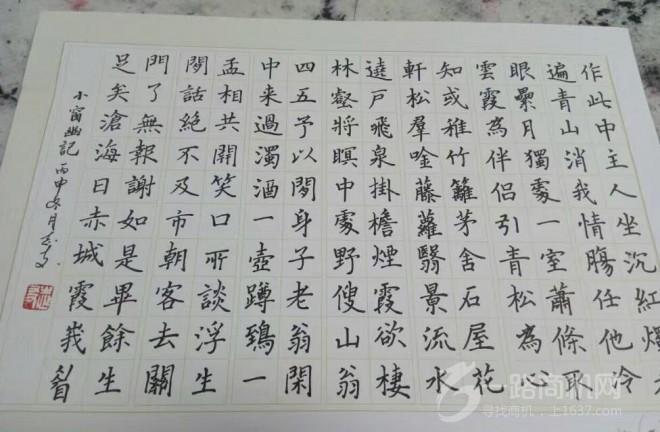 作此中主人坐沉红燭
遍青山消我情腸任他冷
眼罍月獨處一室蕭條取
雲霞為伴侣引青松為心
知或稚竹籬茅舍石屋花
軒松羣唫藤蘿翳景流水
遶戶飛泉掛檐煙霞欲棲
林壑將瞑中處野傁山翁
四五予以閑身子老翁閑
中来過濁酒一壺蹲鵄一
盂相共開笑口所談浮生
閑話絕不及市朝客去關
門了無報謝如是畢餘生
足矣滄海日赤城霞峩眉
小窗幽記 丙申 月
一路商机网
寻找商机,上1637.com